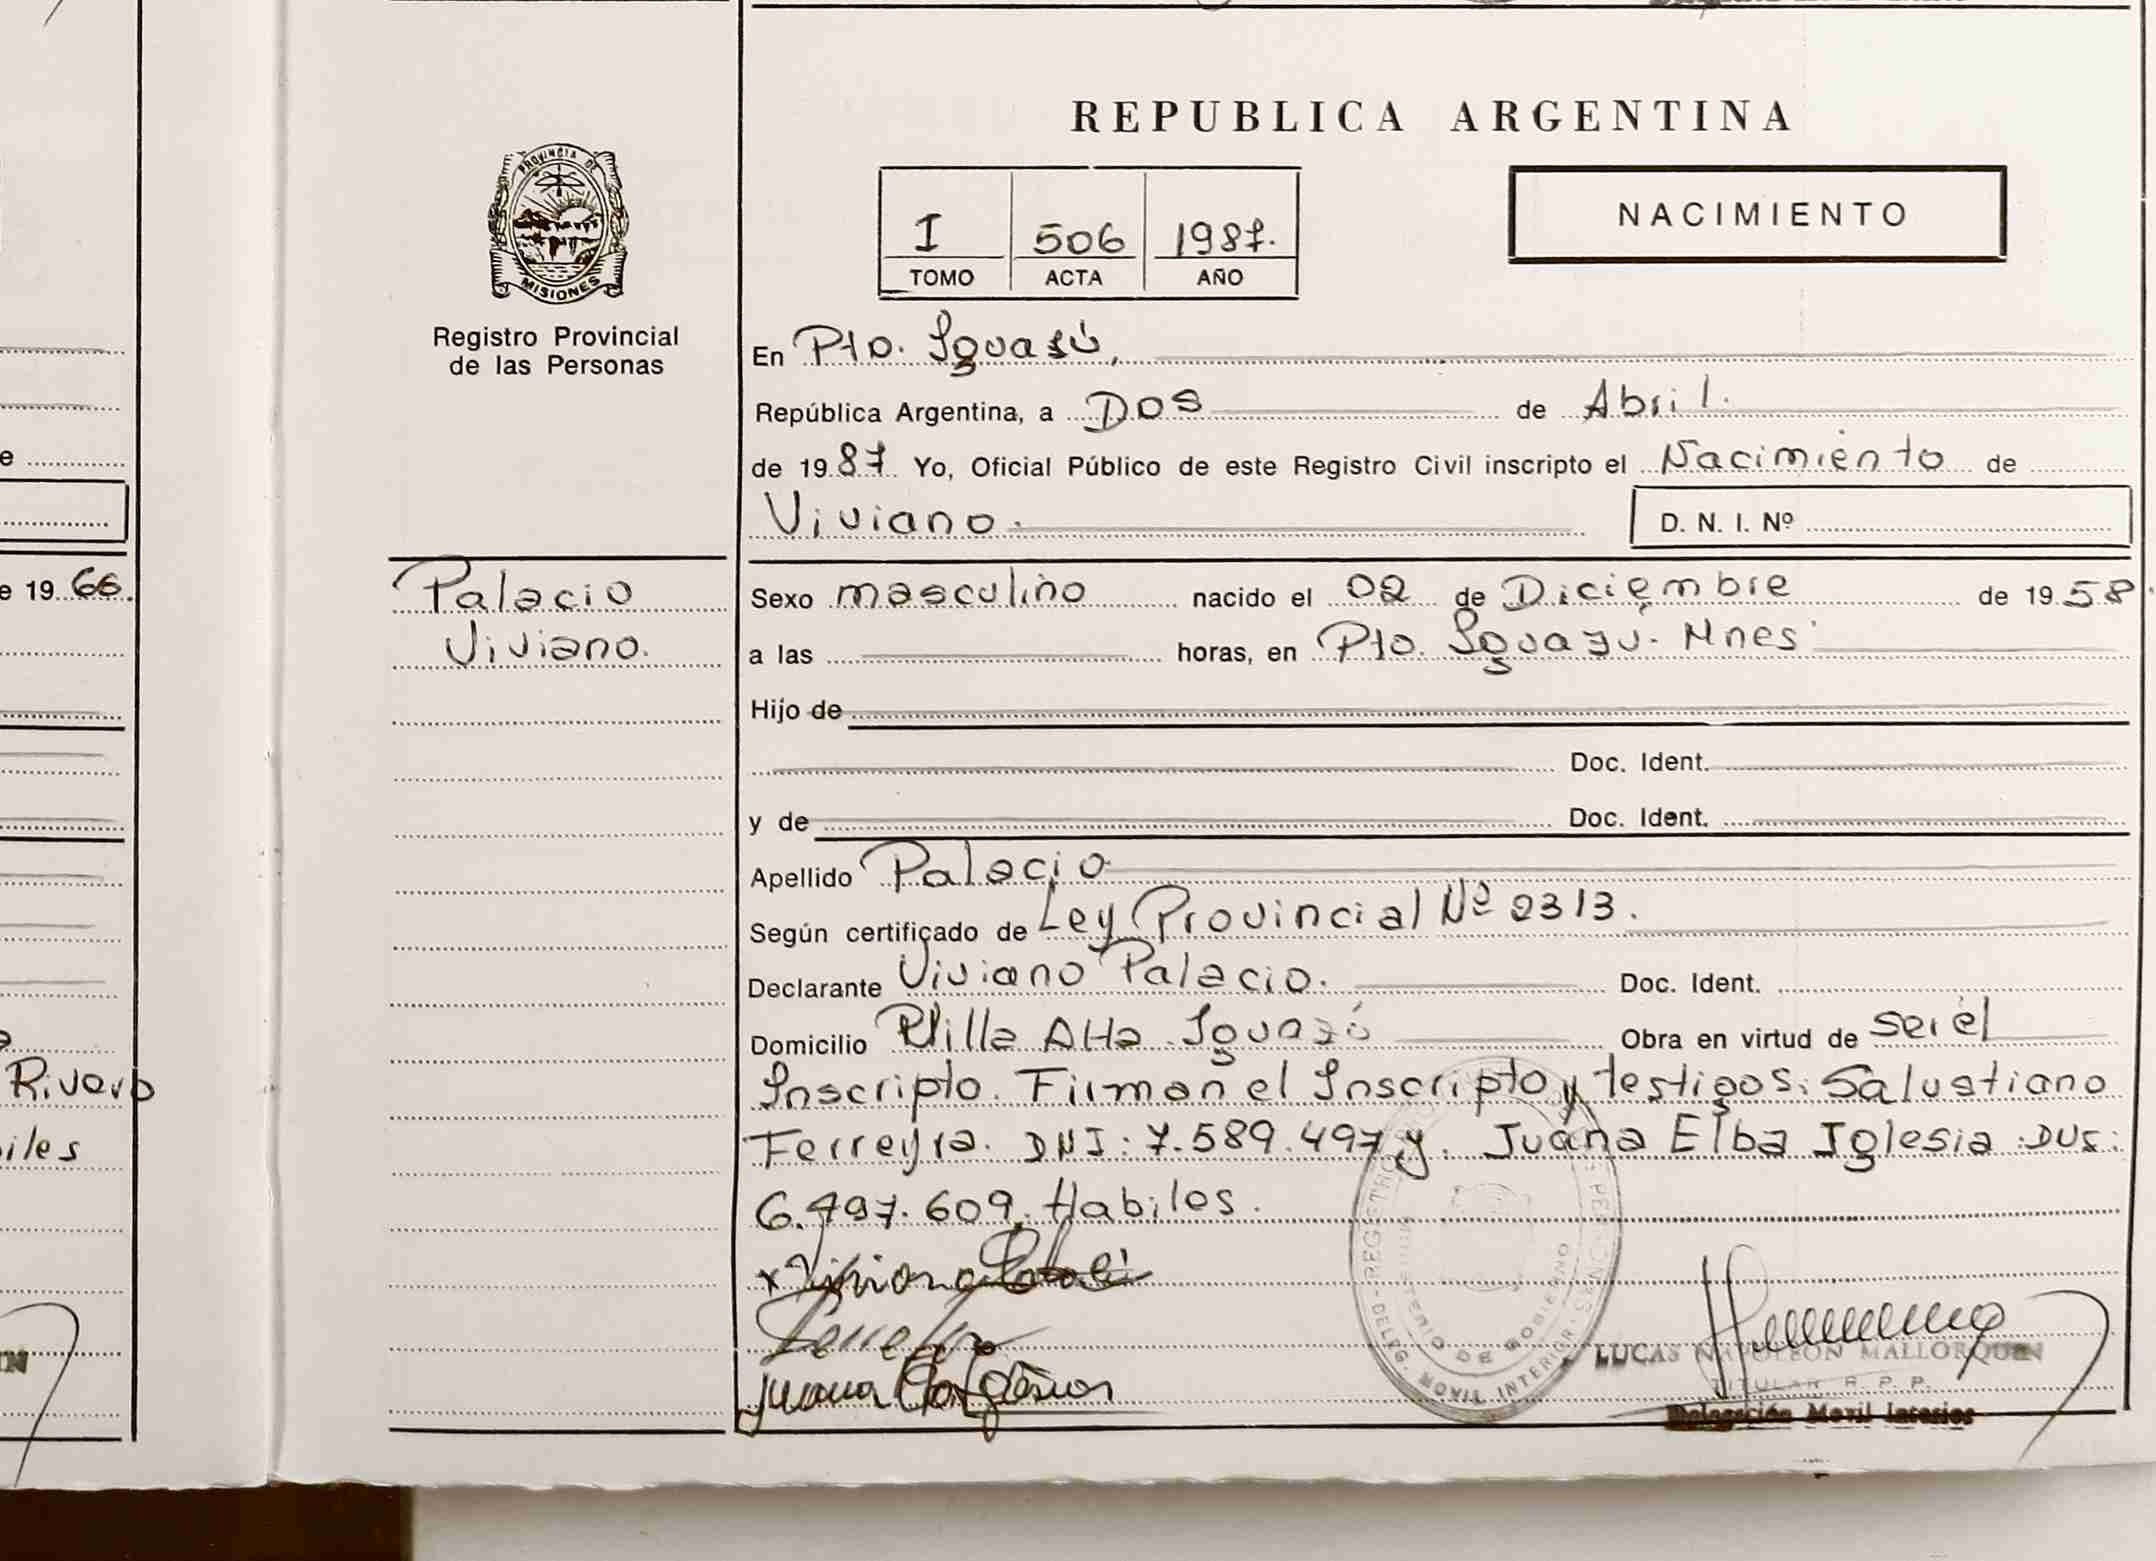 REPUBLICA ARGENTINA
PROVINCIA DE
MISIONES
Registro Provincial
de las Personas
I 506 1987.
TOMO ACTA AÑO
NACIMIENTO
En Pto. Iguasú,
República Argentina, a Dos de Abril.
de 1987 Yo, Oficial Público de este Registro Civil inscripto el Nacimiento de
Viviano.
D. N. I. Nº
Palacio
Viviano.
Sexo masculino nacido el 02 de Diciembre de 1958.
a las horas, en Pto. Iguazú. Mnes
Hijo de
Doc. Ident.
y de Doc. Ident.
Apellido Palacio
Según certificado de Ley Provincial Nº 2313.
Declarante Viviano Palacio. Doc. Ident.
Domicilio Villa Alta Iguazú Obra en virtud de ser el
Inscripto. Firman el Inscripto y testigos: Salustiano
Ferreyra. DNI: 7.589.497 y. Juana Elba Iglesia :DUS:
6.497.609. Habiles.
LUCAS NAPOLEON MALLORQUIN
TITULAR R. P. P.
Delegación Movil Interior
REGISTRO PERSONAS
MINISTERIO DE GOBIERNO
DELEG. MOVIL INTERIOR
e
e 19 66.
Rivero
iles
IN